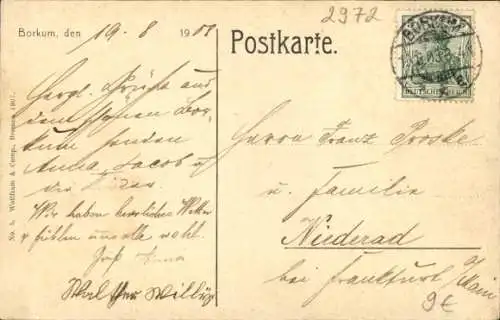 2972
Borkum, den 19. 8 1907
Postkarte.
BORKUM
DEUTSCHES REICH
Herzl. Grüße aus
dem schönen Bor-
kum senden
Anna, Jacob u
die
Wir haben herrliches Wetter
u fühlen uns alle wohl.
Anna
Walther Willy
Herrn Franz Proske
u. Familie
Niederad
bei Frankfurt a/Main
9€
No. 5. Wolffram & Comp. Bremen 1907.